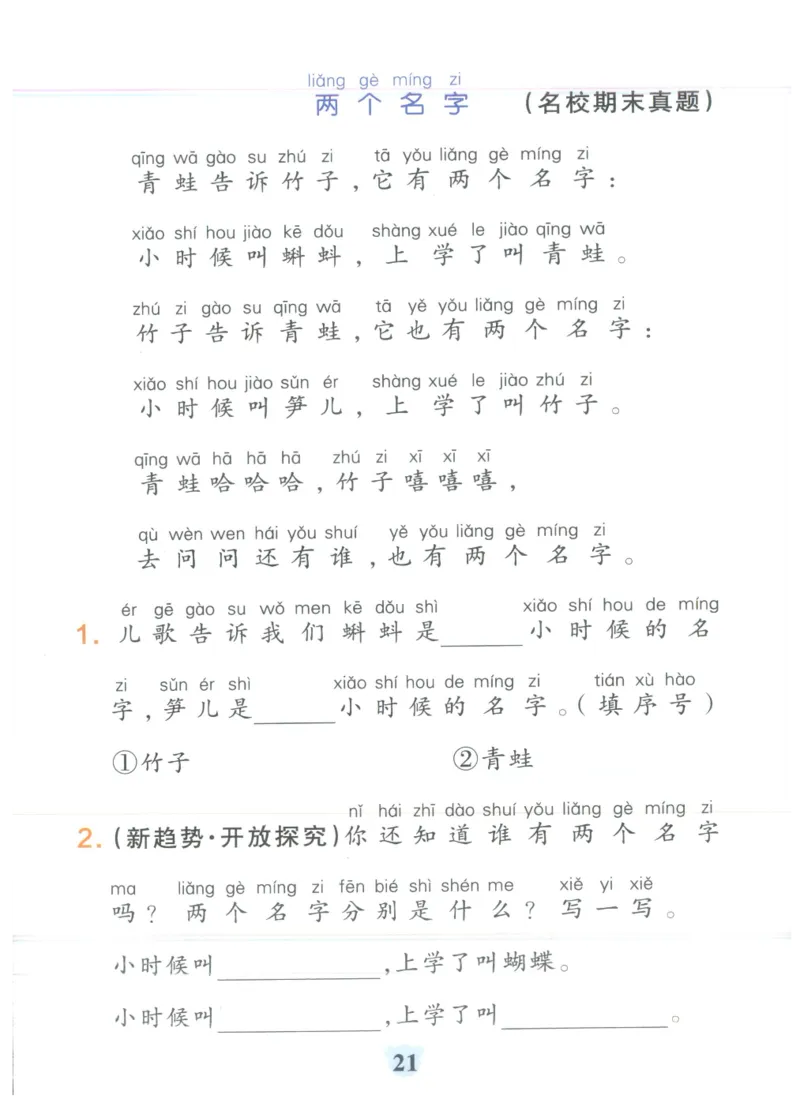 liǎng gè míng zi
两个名字 （名校期末真题）
qīng wā gào su zhú zi tā yǒu liǎng gè míng zi
青蛙告诉竹子，它有两个名字：
xiǎo shí hou jiào kē dǒu shàng xué le jiào qīng wā
小时候叫蝌蚪，上学了叫青蛙。
zhú zi gào su qīng wā tā yě yǒu liǎng gè míng zi
竹子告诉青蛙，它也有两个名字：
xiǎo shí hou jiào sǔn ér shàng xué le jiào zhú zi
小时候叫笋儿，上学了叫竹子。
qīng wā hā hā hā zhú zi xī xī xī
青蛙哈哈哈，竹子嘻嘻嘻，
qù wèn wen hái yǒu shuí yě yǒu liǎng gè míng zi
去问问还有谁，也有两个名字。
ér gē gào su wǒ men kē dǒu shì xiǎo shí hou de míng
1. 儿歌告诉我们蝌蚪是______小时候的名
zi sǔn ér shì xiǎo shí hou de míng zi tián xù hào
字，笋儿是______小时候的名字。（填序号）
①竹子 ②青蛙
nǐ hái zhī dào shuí yǒu liǎng gè míng zi
2.（新趋势·开放探究）你还知道谁有两个名字
ma liǎng gè míng zi fēn bié shì shén me xiě yi xiě
吗？两个名字分别是什么？写一写。
小时候叫____________，上学了叫蝴蝶。
小时候叫____________，上学了叫____________。
21